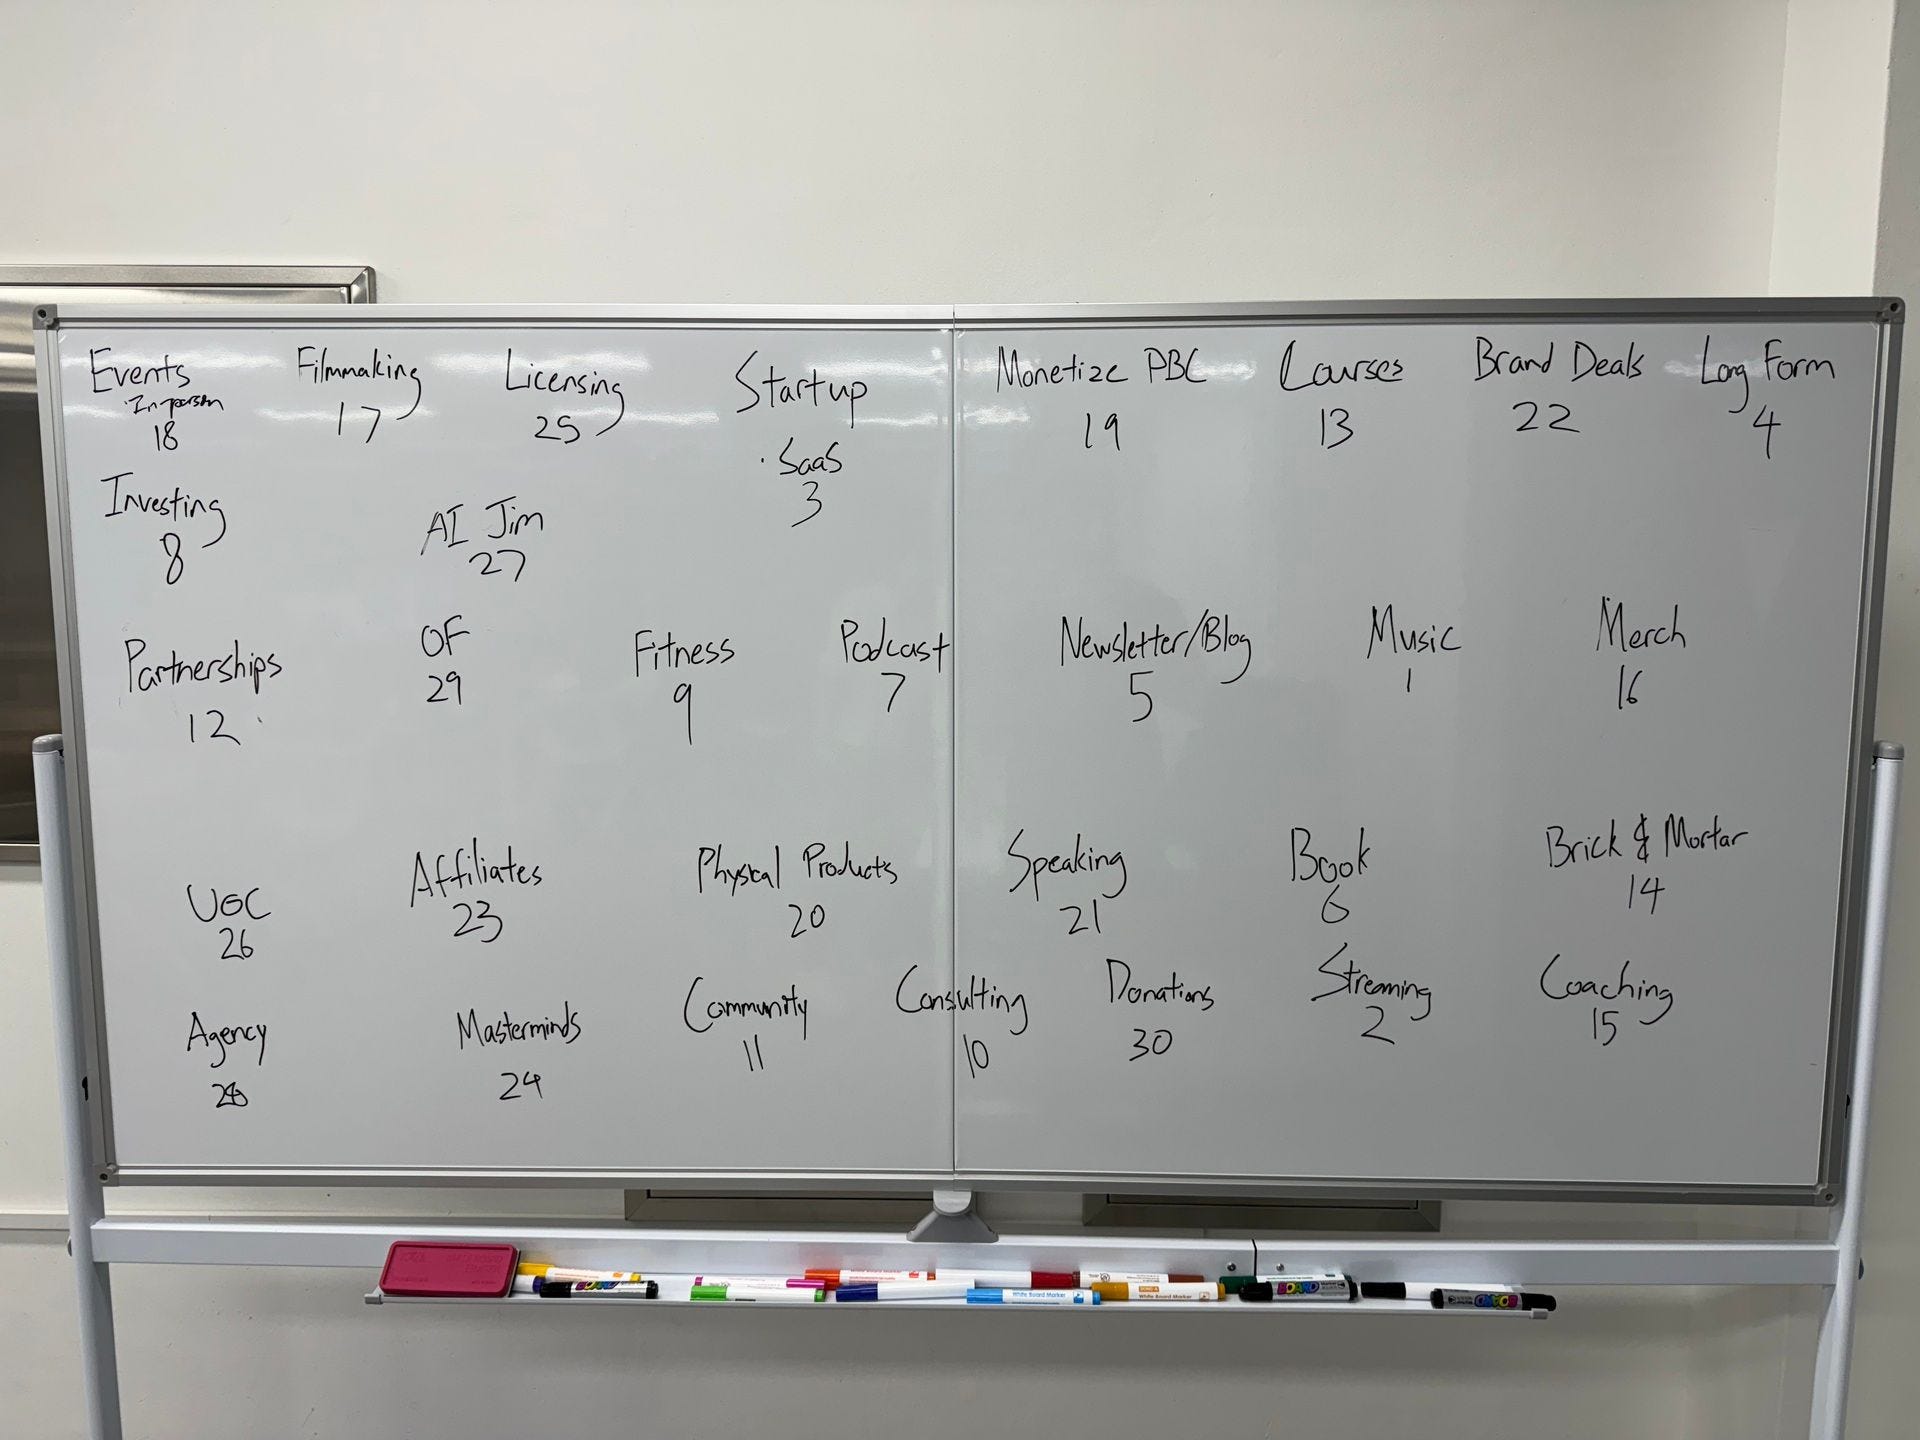 Events
· In-person
18
Filmmaking
17
Licensing
25
Startup
· SaaS
3
Monetize PBC
19
Courses
13
Brand Deals
22
Long Form
4
Investing
8
AI Jim
27
Partnerships
12
OF
29
Fitness
9
Podcast
7
Newsletter/Blog
5
Music
1
Merch
16
UGC
26
Affiliates
23
Physical Products
20
Speaking
21
Book
6
Brick & Mortar
14
Agency
28
Masterminds
24
Community
11
Consulting
10
Donations
30
Streaming
2
Coaching
15
White Board Marker
White Board Marker
BOARD
BOARD